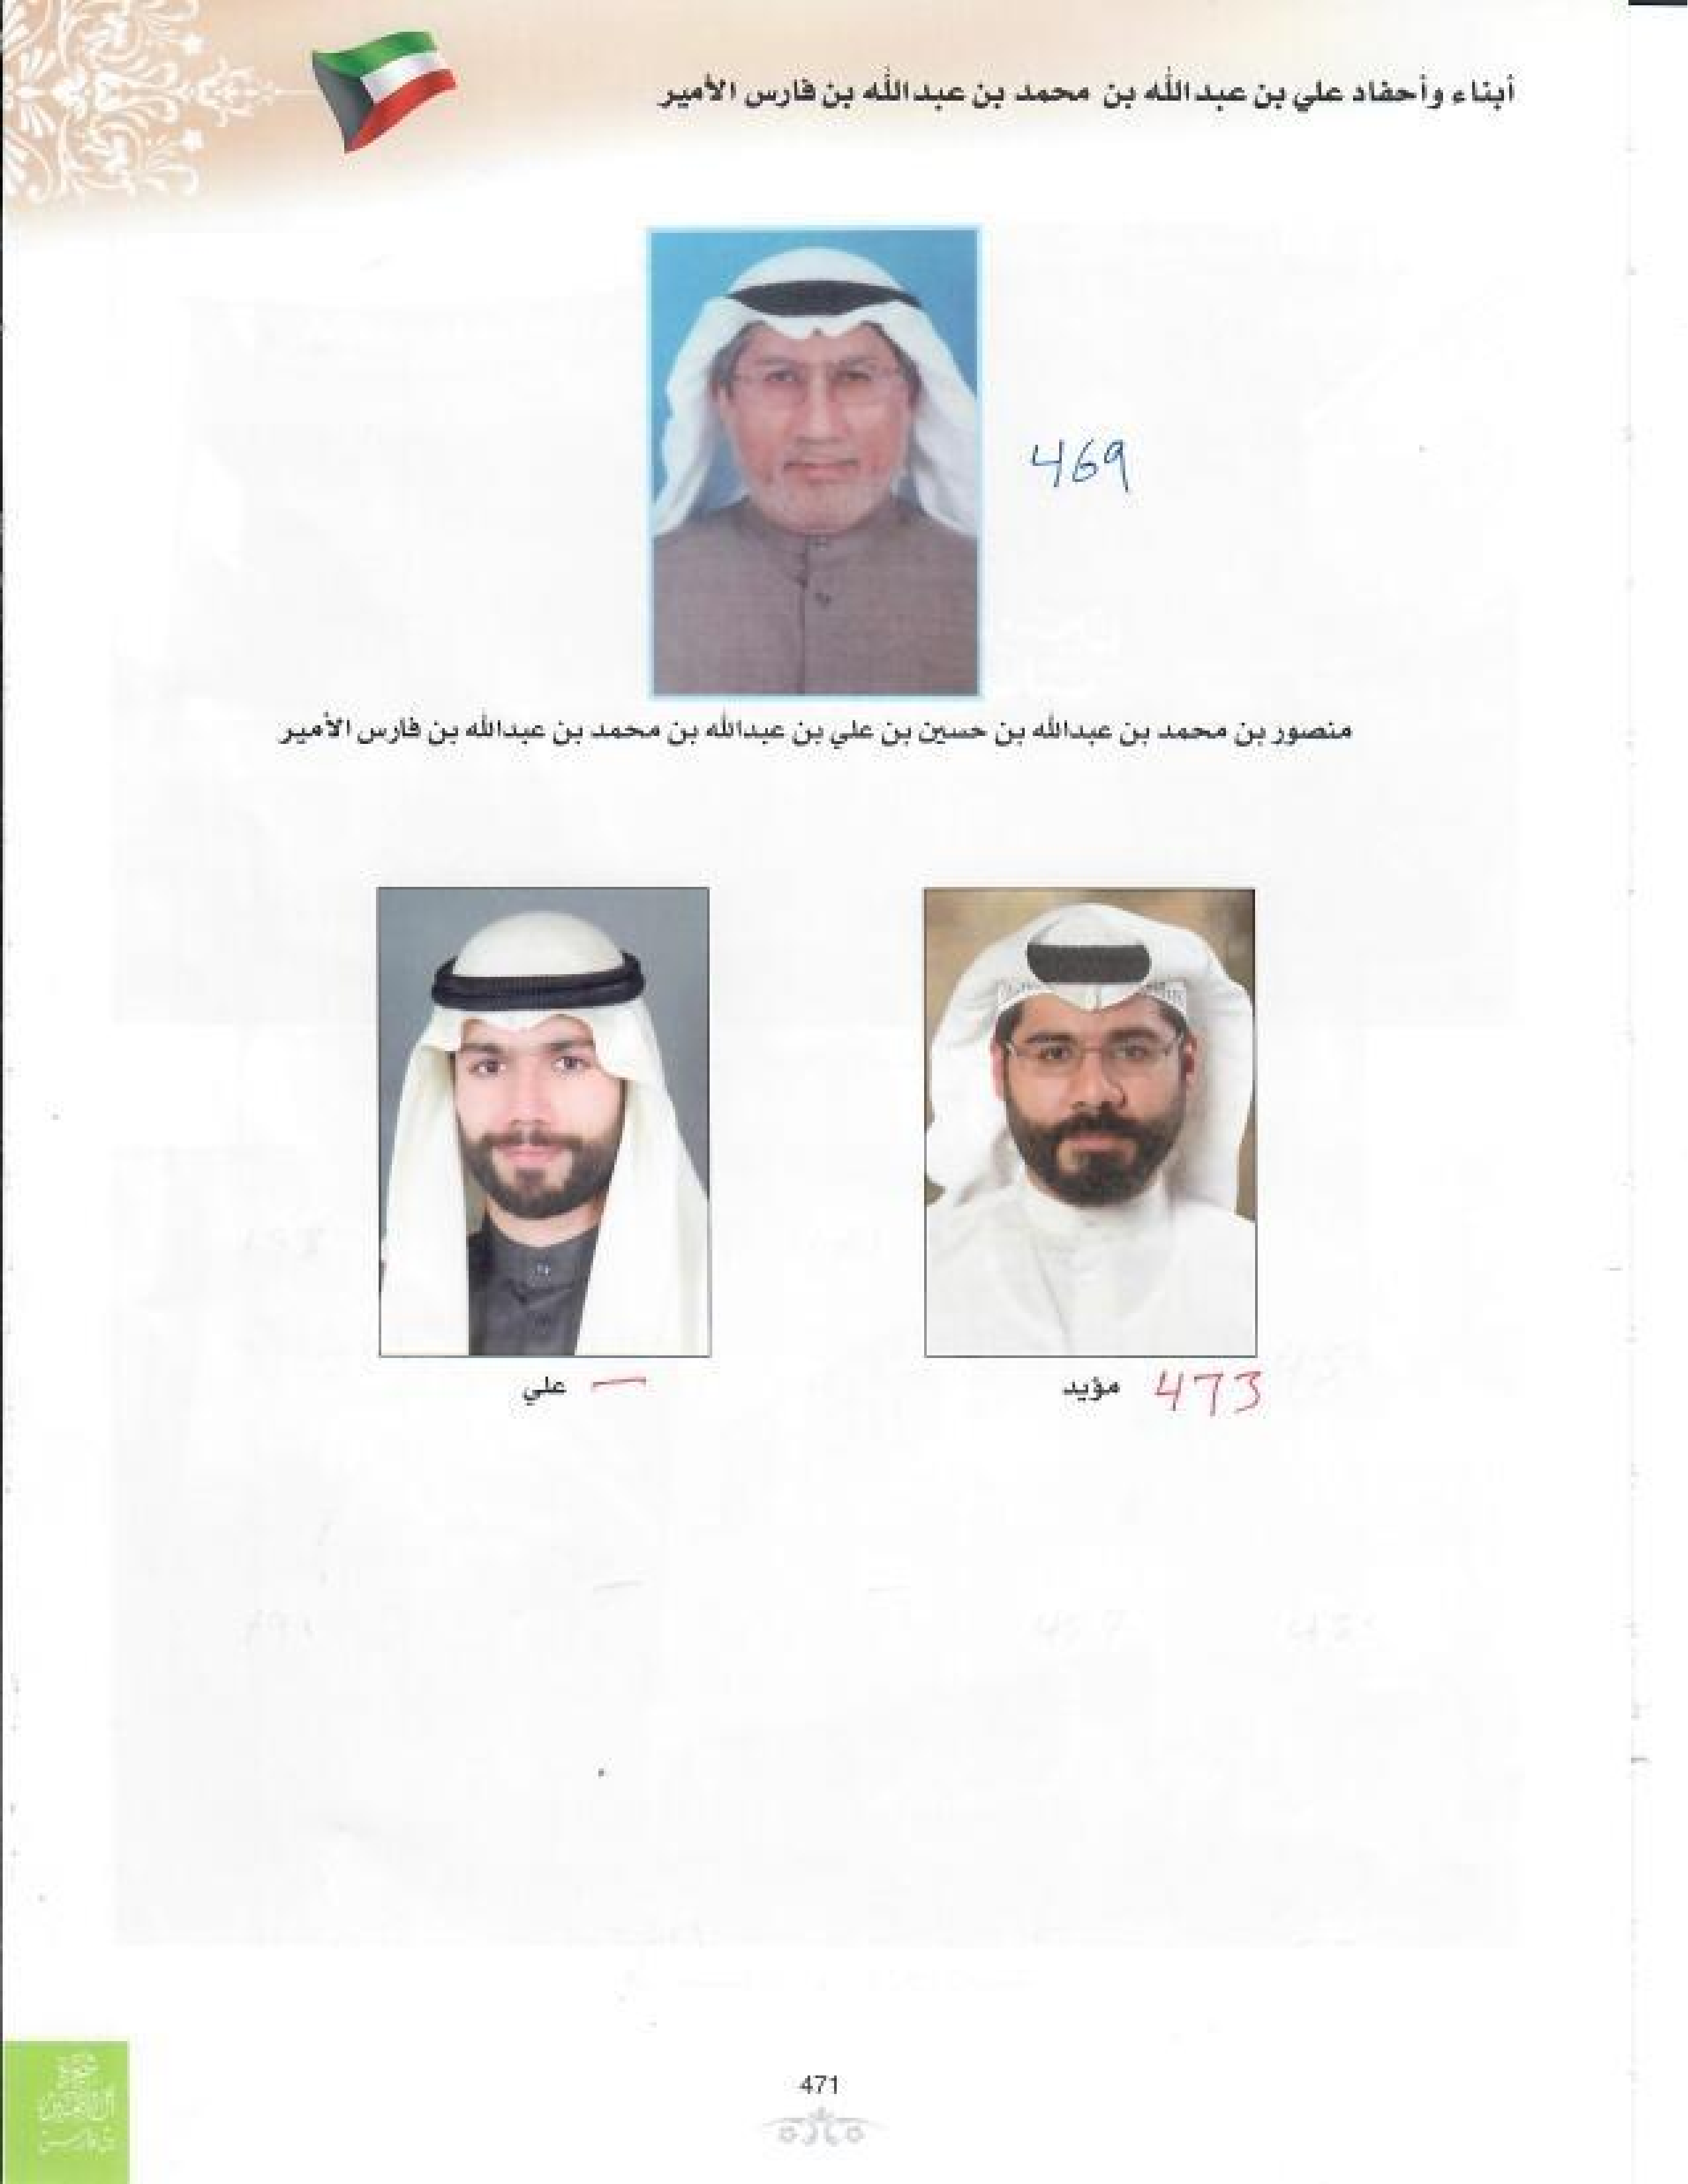 أبناء وأحفاد علي بن عبدالله بن محمد بن عبدالله بن فارس الأمير
469
منصور بن محمد بن عبدالله بن حسين بن علي بن عبدالله بن محمد بن عبدالله بن فارس الأمير
مؤيد 473
علي —
471